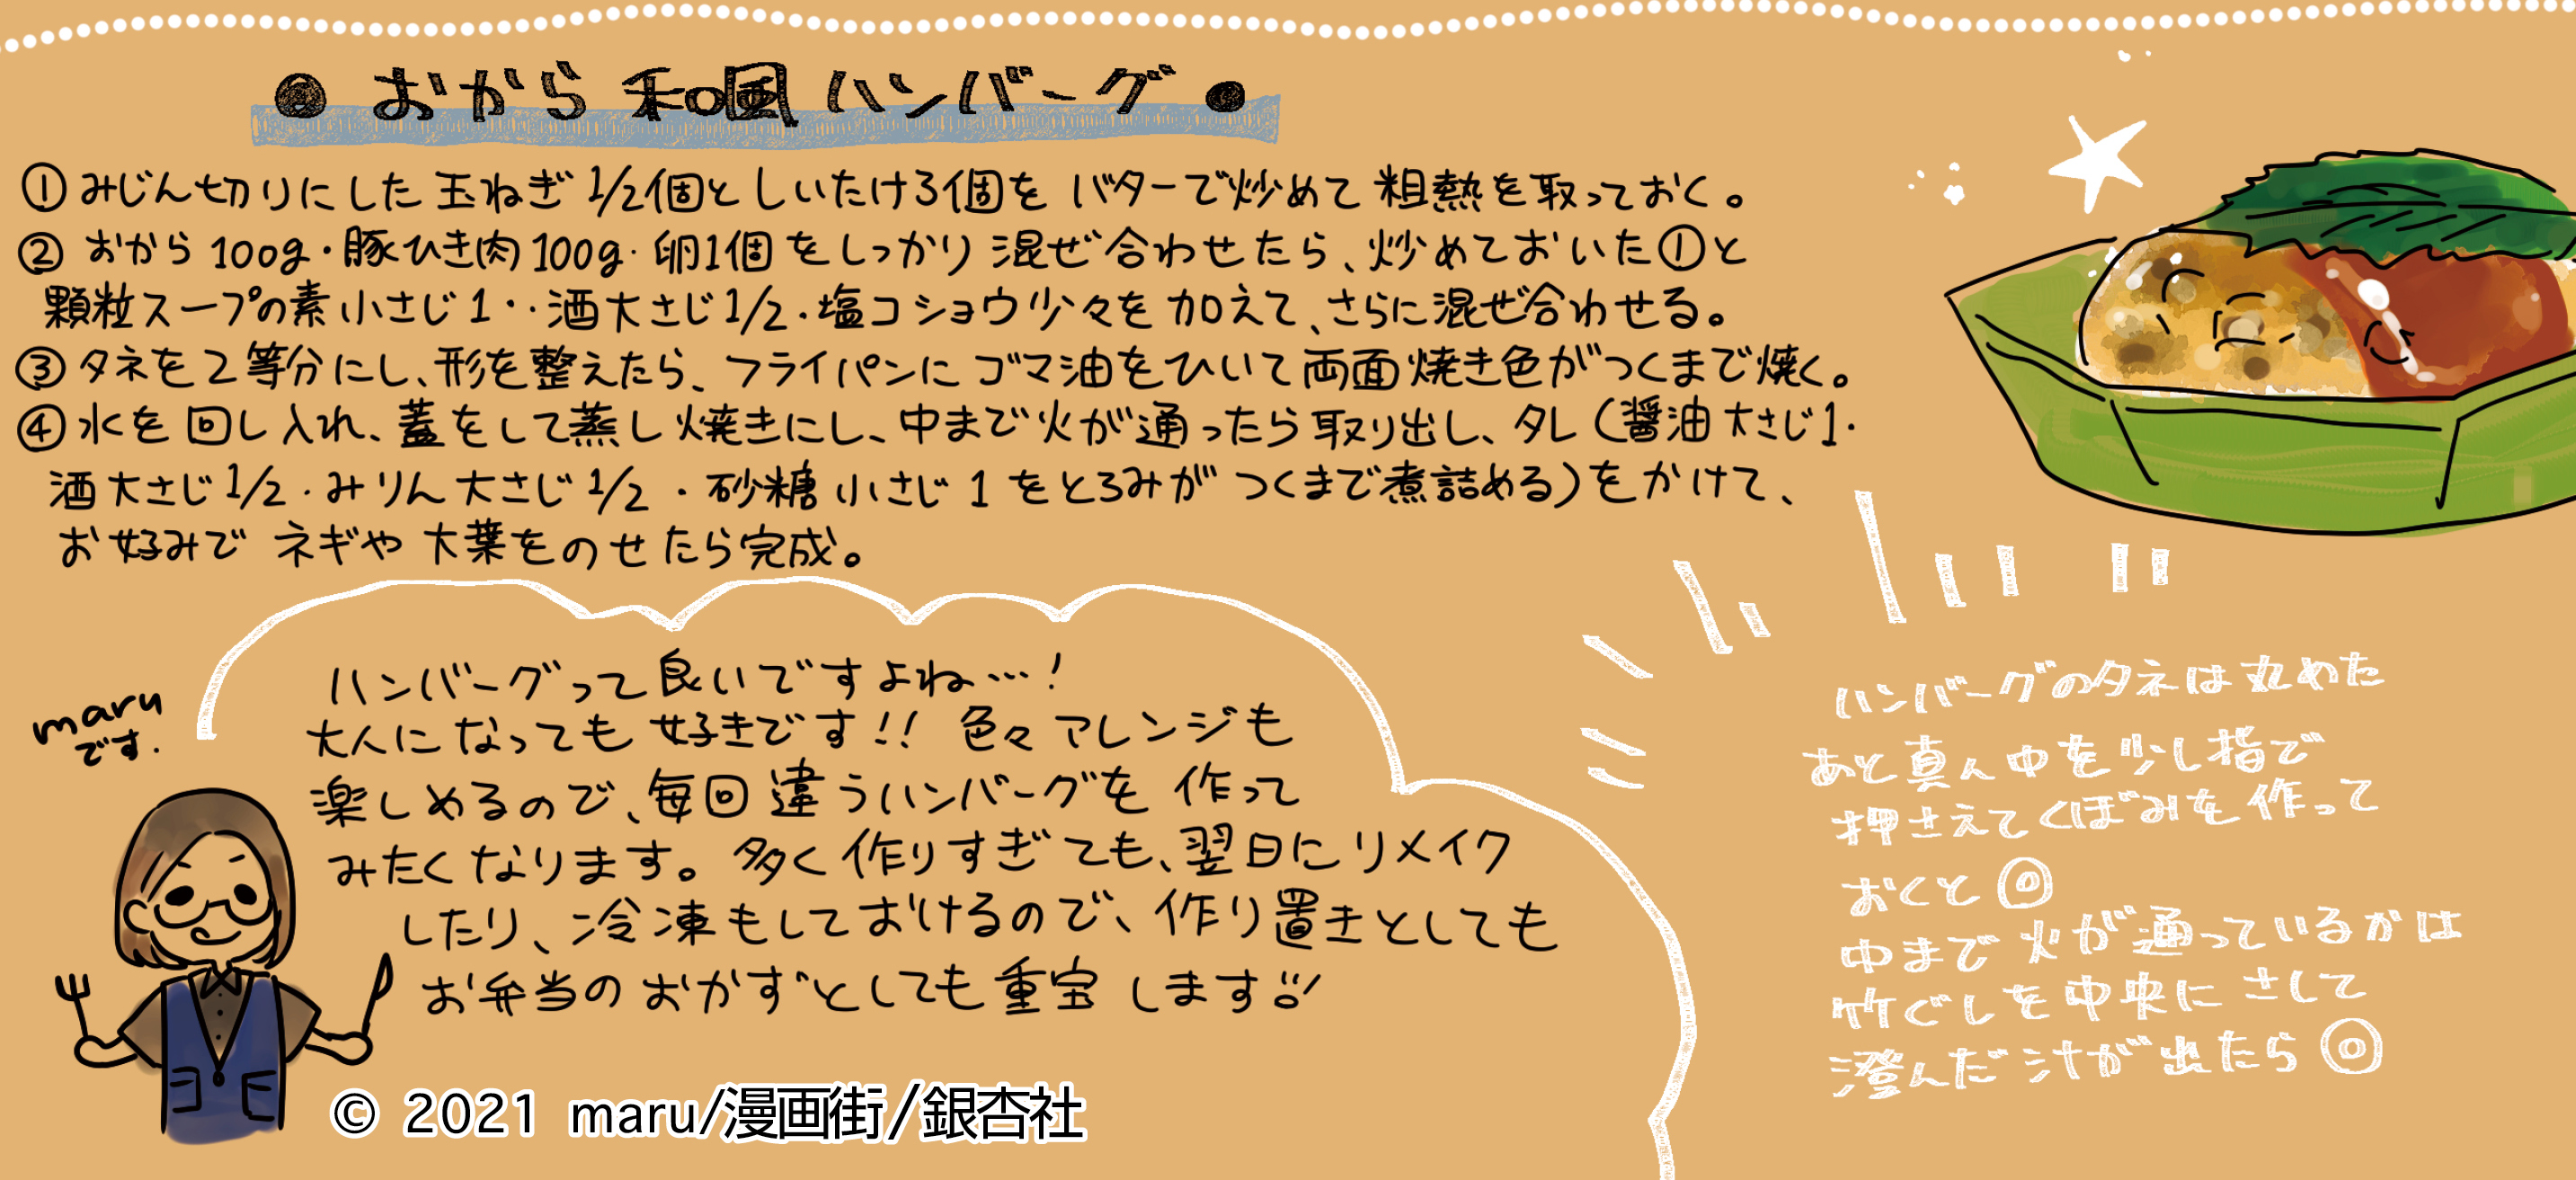 ● おから 和風 ハンバーグ ●
① みじん切りにした 玉ねぎ 1/2個と しいたけ3個を バターで炒めて 粗熱を取っておく。
② おから 100g・豚ひき肉 100g・卵1個 をしっかり 混ぜ合わせたら、炒めておいた①と
顆粒スープの素 小さじ1・・酒大さじ1/2・塩コショウ少々を 加えて、さらに混ぜ合わせる。
③ タネを2等分にし、形を整えたら、フライパンに ゴマ油をひいて 両面焼き色がつくまで焼く。
④ 水を 回し入れ、蓋をして蒸し焼きにし、中まで火が通ったら 取り出し、タレ(醤油 大さじ1・
酒大さじ1/2・みりん大さじ1/2・砂糖 小さじ1 をとろみが つくまで煮詰める)をかけて、
お好みで ネギや 大葉をのせたら完成。
maru
です.
ハンバーグって良いですよね…!
大人になっても 好きです!! 色々アレンジも
楽しめるので、毎回違うハンバーグを 作って
みたくなります。多く作りすぎても、翌日にリメイク
したり、冷凍もしておけるので、作り置きとしても
お弁当のおかずとしても重宝します!!
© 2021 maru/漫画街/銀杏社
ハンバーグのタネは丸めた
あと真ん中を少し指で
押さえてくぼみを作って
おくと◎
中まで火が通っているかは
竹ぐしを中央にさして
澄んだ汁が出たら◎